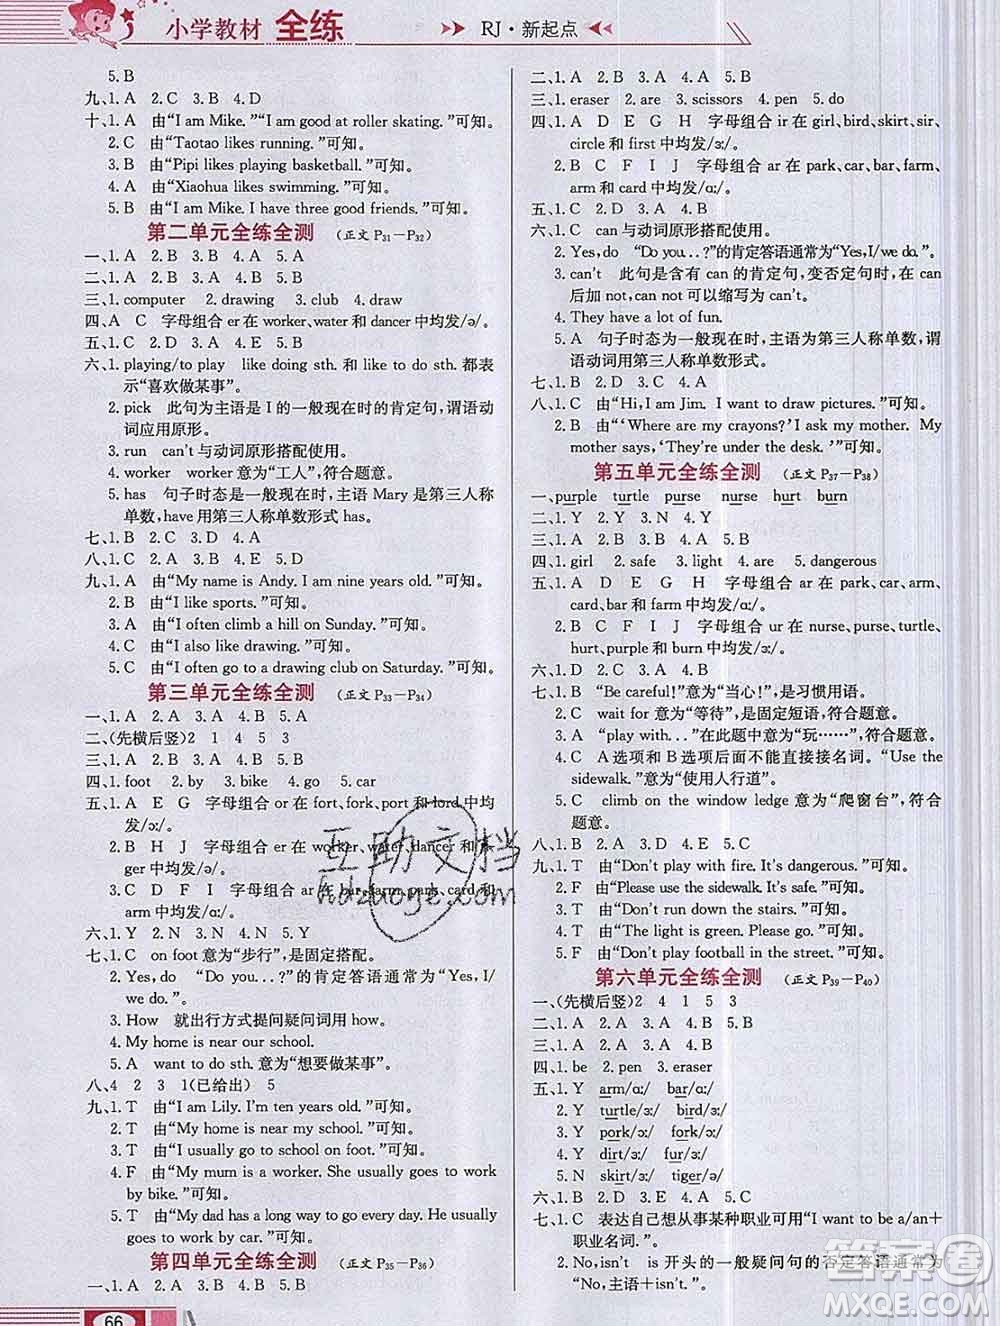 小学教材 全练
RJ·新起点
5. B
九、1. A 2. C 3. B 4. D
十、1. A 由“I am Mike.”“I am good at roller skating.”可知。
2. C 由“Taotao likes running.”可知。
3. B 由“Pipi likes playing basketball.”可知。
4. A 由“Xiaohua likes swimming.”可知。
5. B 由“I am Mike. I have three good friends.”可知。
第二单元全练全测 (正文 P31—P32)
一、1. C 2. B 3. A 4. B 5. A
二、1. A 2. A 3. B 4. B 5. B
三、1. computer 2. drawing 3. club 4. draw
四、A C 字母组合 er 在 worker, water 和 dancer 中均发/ə/。
五、1. C 2. D 3. A 4. E 5. B
六、1. playing/to play like doing sth. 和 like to do sth. 都表
示“喜欢做某事”。
2. pick 此句为主语是 I 的一般现在时的肯定句,谓语动
词应用原形。
3. run can't 与动词原形搭配使用。
4. worker worker 意为“工人”,符合题意。
5. has 句子时态是一般现在时,主语 Mary 是第三人称
单数,have 用第三人称单数形式 has。
七、1. B 2. C 3. D 4. A
八、1. C 2. A 3. B 4. E 5. D
九、1. A 由“My name is Andy. I am nine years old.”可知。
2. B 由“I like sports.”可知。
3. A 由“I often climb a hill on Sunday.”可知。
4. C 由“I also like drawing.”可知。
5. C 由“I often go to a drawing club on Saturday.”可知。
第三单元全练全测 (正文 P33—P34)
一、1. A 2. A 3. A 4. B 5. A
二、(先横后竖)2 1 4 5 3
三、1. C 2. B 3. A 4. B 5. A
四、1. foot 2. by 3. bike 4. go 5. car
五、1. A E G 字母组合 or 在 fort、fork、port 和 lord 中均
发/ɔː/。
2. B H J 字母组合 er 在 worker、water、dancer 和
ger 中均发/ə/。
3. C D F I 字母组合 ar 在 bar、farm、park、card 和
arm 中均发/ɑː/。
六、1. Y 2. N 3. N 4. N 5. Y
七、1. C on foot 意为“步行”,是固定搭配。
2. Yes, do “Do you...?”的肯定答语通常为“Yes, I/
we do.”。
3. How 就出行方式提问疑问词用 how。
4. My home is near our school.
5. A want to do sth. 意为“想要做某事”。
八、4 2 3 1(已给出) 5
九、1. T 由“I am Lily. I'm ten years old.”可知。
2. T 由“My home is near my school.”可知。
3. T 由“I usually go to school on foot.”可知。
4. F 由“My mum is a worker. She usually goes to work
by bike.”可知。
5. T 由“My dad has a long way to go every day. He usually
goes to work by car.”可知。
第四单元全练全测 (正文 P35—P36)
一、1. A 2. A 3. B 4. A 5. B
66
二、1. A 2. B 3. A 4. B 5. B
三、1. eraser 2. are 3. scissors 4. pen 5. do
四、1. A D E G H 字母组合 ir 在 girl、bird、skirt、sir、
circle 和 first 中均发/ɜː/。
2. B C F I J 字母组合 ar 在 park、car、bar、farm、
arm 和 card 中均发/ɑː/。
五、1. C 2. B 3. A 4. B 5. A
六、1. C can 与动词原形搭配使用。
2. Yes, do “Do you...?”的肯定答语通常为“Yes, I/we do.”。
3. can't 此句是含有 can 的肯定句,变否定句时,在 can
后加 not, can not 可以缩写为 can't。
4. They have a lot of fun.
5. A 句子时态为一般现在时,主语为第三人称单数,谓
语动词用第三人称单数形式。
七、1. B 2. D 3. C 4. A
八、1. C 由“Hi, I am Jim. I want to draw pictures.”可知。
2. B 由“‘Where are my crayons?’ I ask my mother. My
mother says, ‘They're under the desk.’”可知。
第五单元全练全测 (正文 P37—P38)
一、purple turtle purse nurse hurt burn
二、1. Y 2. Y 3. N 4. Y
三、1. A 2. A 3. A 4. B 5. B
四、1. girl 2. safe 3. light 4. are 5. dangerous
五、1. A D E G H 字母组合 ar 在 park、car、arm、
card、bar 和 farm 中均发/ɑː/。
2. B C F I J 字母组合 ur 在 nurse、purse、turtle、
hurt、purple 和 burn 中均发/ɜː/。
六、1. D 2. C 3. A 4. B
七、1. B “Be careful!”意为“当心!”,是习惯用语。
2. C wait for 意为“等待”,是固定短语,符合题意。
3. A “play with...”在此题中意为“玩……”,符合题意。
4. C A 选项和 B 选项后面不能直接接名词。“Use the
sidewalk.”意为“使用人行道”。
5. C climb on the window ledge 意为“爬窗台”,符合
题意。
八、1. B 2. A 3. B 4. B 5. A
九、1. T 由“Don't play with fire. It's dangerous.”可知。
2. F 由“Please use the sidewalk. It's safe.”可知。
3. T 由“Don't run down the stairs.”可知。
4. T 由“The light is green. Please go.”可知。
5. F 由“Don't play football in the street.”可知。
第六单元全练全测 (正文 P39—P40)
一、(先横后竖)2 4 1 5 3
二、1. A 2. A 3. A 4. B 5. B
三、1. A 2. A 3. A 4. A 5. B
四、1. be 2. pen 3. eraser
五、1. Y arm/ɑː/ bar/ɑː/
2. Y turtle/ɜː/ bird/ɜː/
3. Y pork/ɔː/ fork/ɔː/
4. Y dirt/ɜː/ first/ɜː/
5. N skirt/ɜː/ tiger/ə/
六、1. B 2. A 3. B 4. A 5. C
七、1. C 表达自己想从事某种职业可用“I want to be a/an+
职业名词.”。
2. No, isn't is 开头的一般疑问句的否定答语通常为
“No,主语+isn't.”。
互助文档
hdzuoye.com
答案圈
MXQE.COM